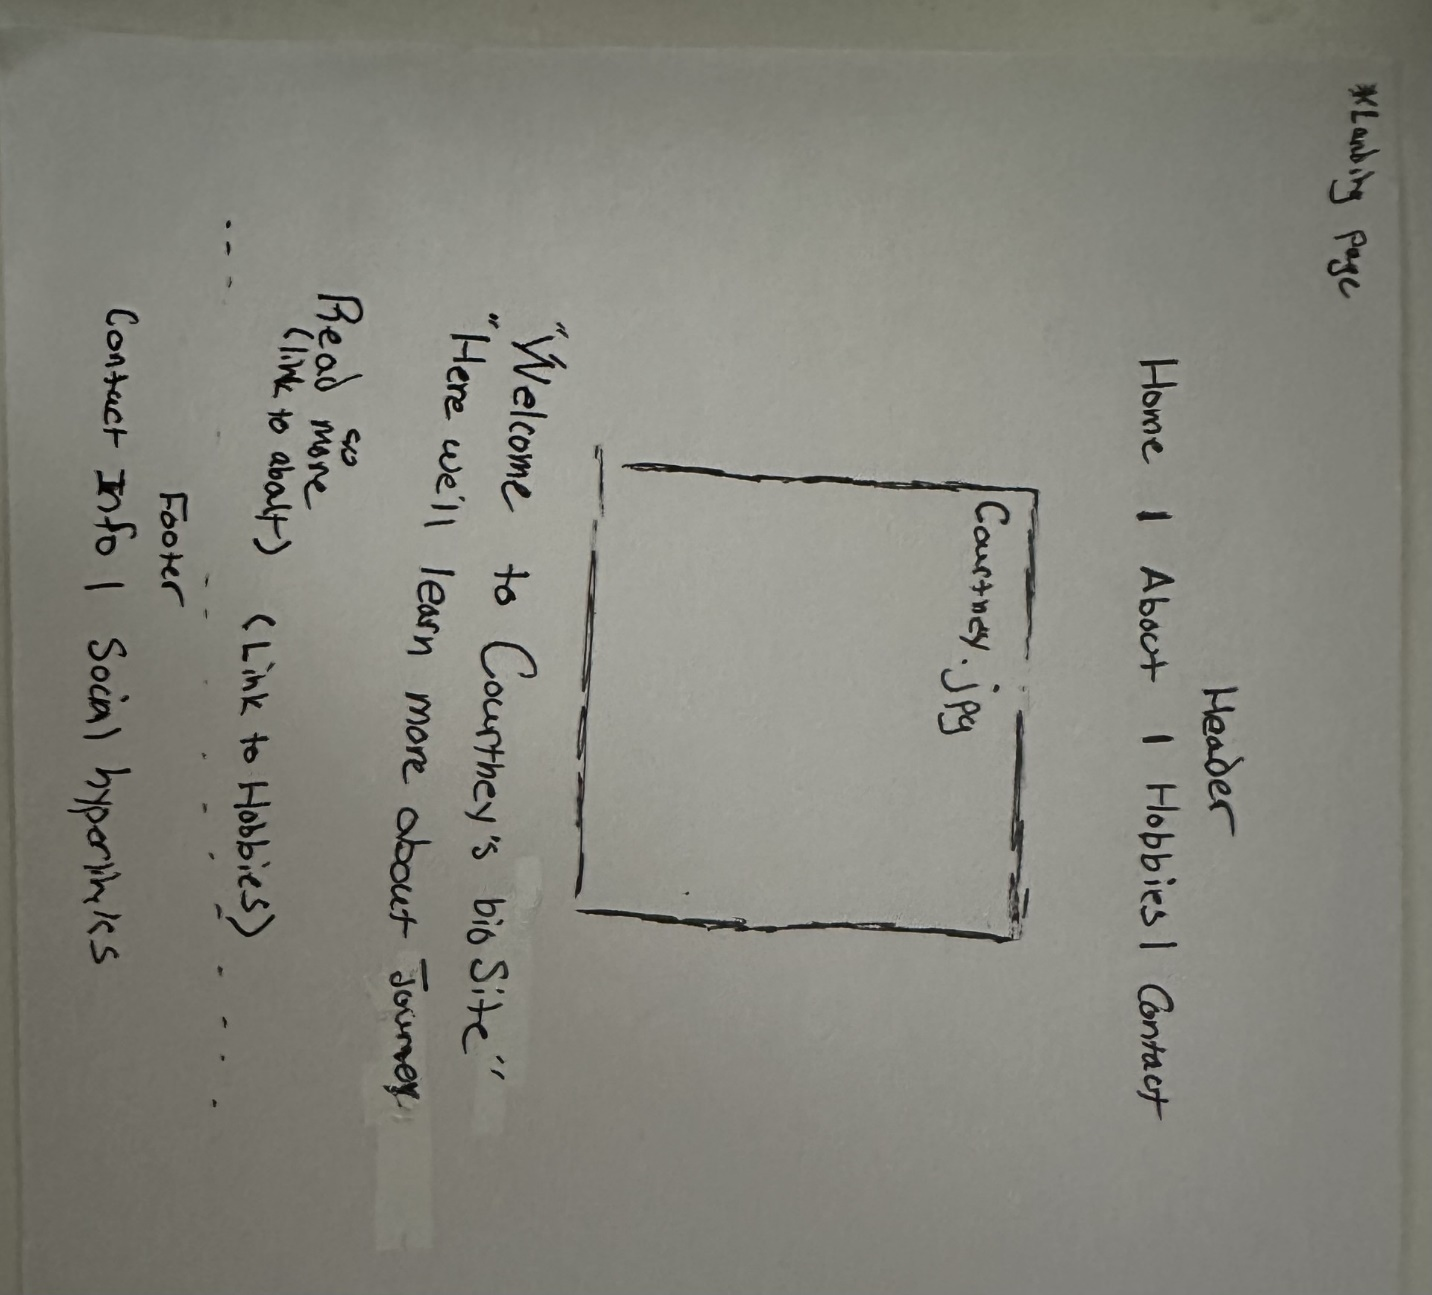 *Landing Page
Header
Home | About | Hobbies | Contact
Courtney.jpg
"Welcome to Courtney's bio Site"
"Here we'll learn more about Journey"
Read more
(link to about) (Link to Hobbies)
Footer
Contact Info | Social hyperlinks